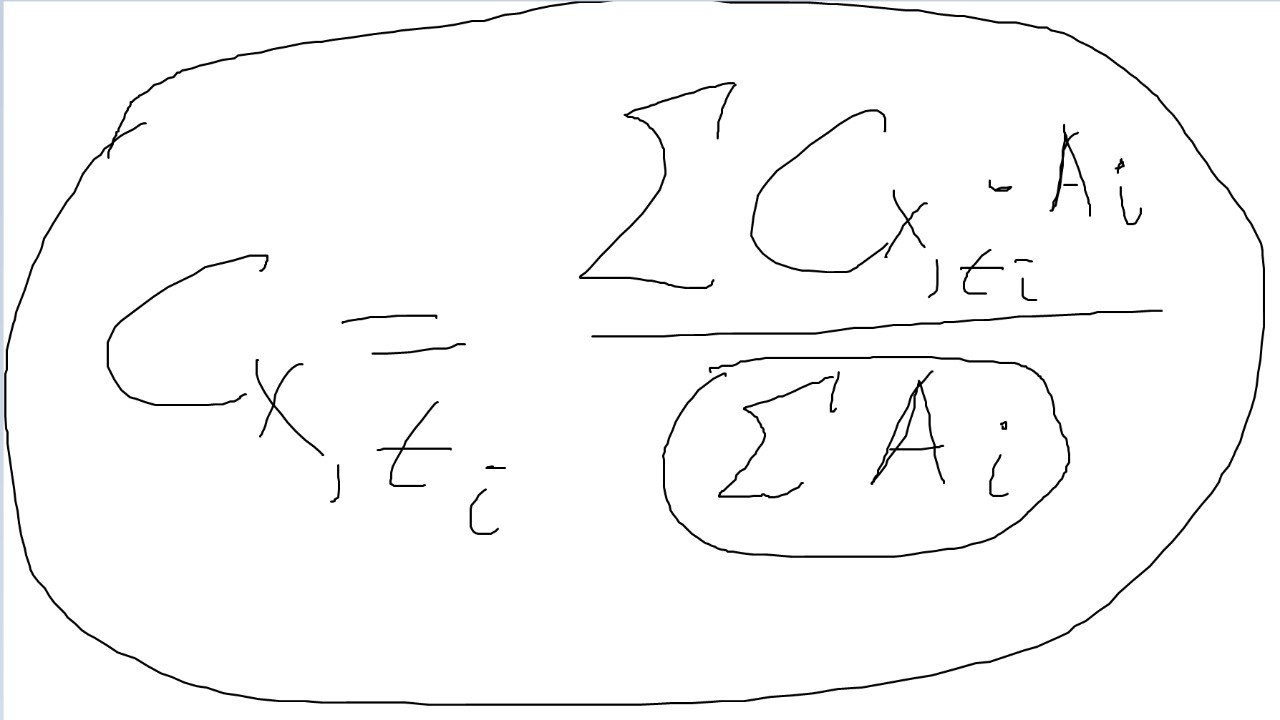 C_{x,t_i} = \frac{\sum C_{x,t_i} - A_i}{\sum A_i}